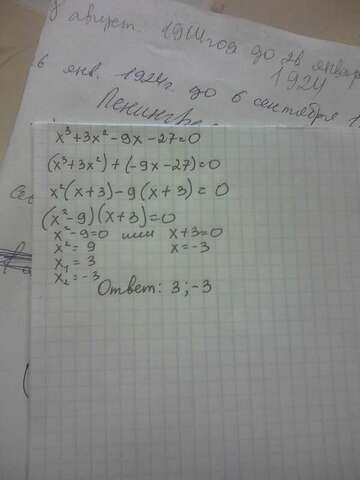 август. 1914 год до 26 январ
1924
6 янв. 1924г. до 6 сентября 1
Ленингр
x³+3x²-9x-27=0
(x³+3x²)+(-9x-27)=0
x²(x+3)-9(x+3)=0
(x²-9)(x+3)=0
x²-9=0 или x+3=0
x²=9 x=-3
x₁=3
x₂=-3
Ответ: 3;-3